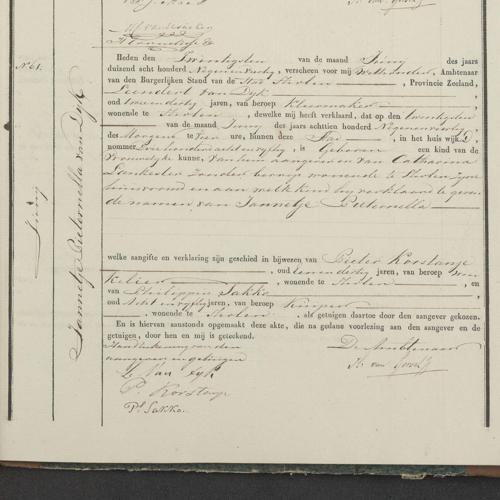 N° 61.
Juny
Jannetje Pieternella van Dyk
Heden den Twintigsten van de maand Juny des jaars
duizend acht honderd Negenenveertig, verscheen voor mij Wethouder, Ambtenaar
van den Burgerlijken Stand van de Stad Tholen, Provincie Zeeland,
Leendert van Dyk
oud tweeendertig jaren, van beroep kleermaker
wonende te Tholen, dewelke mij heeft verklaard, dat op den twintigsten
van de maand Juny des jaars achttien honderd Negenenveertig,
des Morgens te vier ure, binnen deze Stad, in het huis wijk D,
nommer Een honderd achtenvyftig, is Geboren een kind van de
Vrouwelijke kunne, van hem aangever en van Catharina
Lankester zonder beroep wonende te Tholen zijne
huisvrouw en aan welk kind hy verklaarde te geven
de namen van Jannetje Pieternella
welke aangifte en verklaring zijn geschied in bijwezen van Pieter Korstanje
, oud eenendertig jaren, van beroep
, wonende te Tholen, en
van Philippus Sakko
oud Acht en vyftig jaren, van beroep Kuiper
, wonende te Tholen, als getuigen daartoe door den aangever gekozen.
En is hiervan aanstonds opgemaakt deze akte, die na gedane voorlezing aan den aangever en de
getuigen, door hen en mij is geteekend.
Handteekening van den
aangever en getuigen
De Ambtenaar
L. Van Dyk
P. Korstanje
P. Sakko